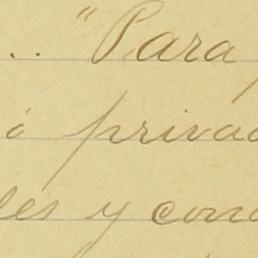 .. "Para
ó privad
les y cono